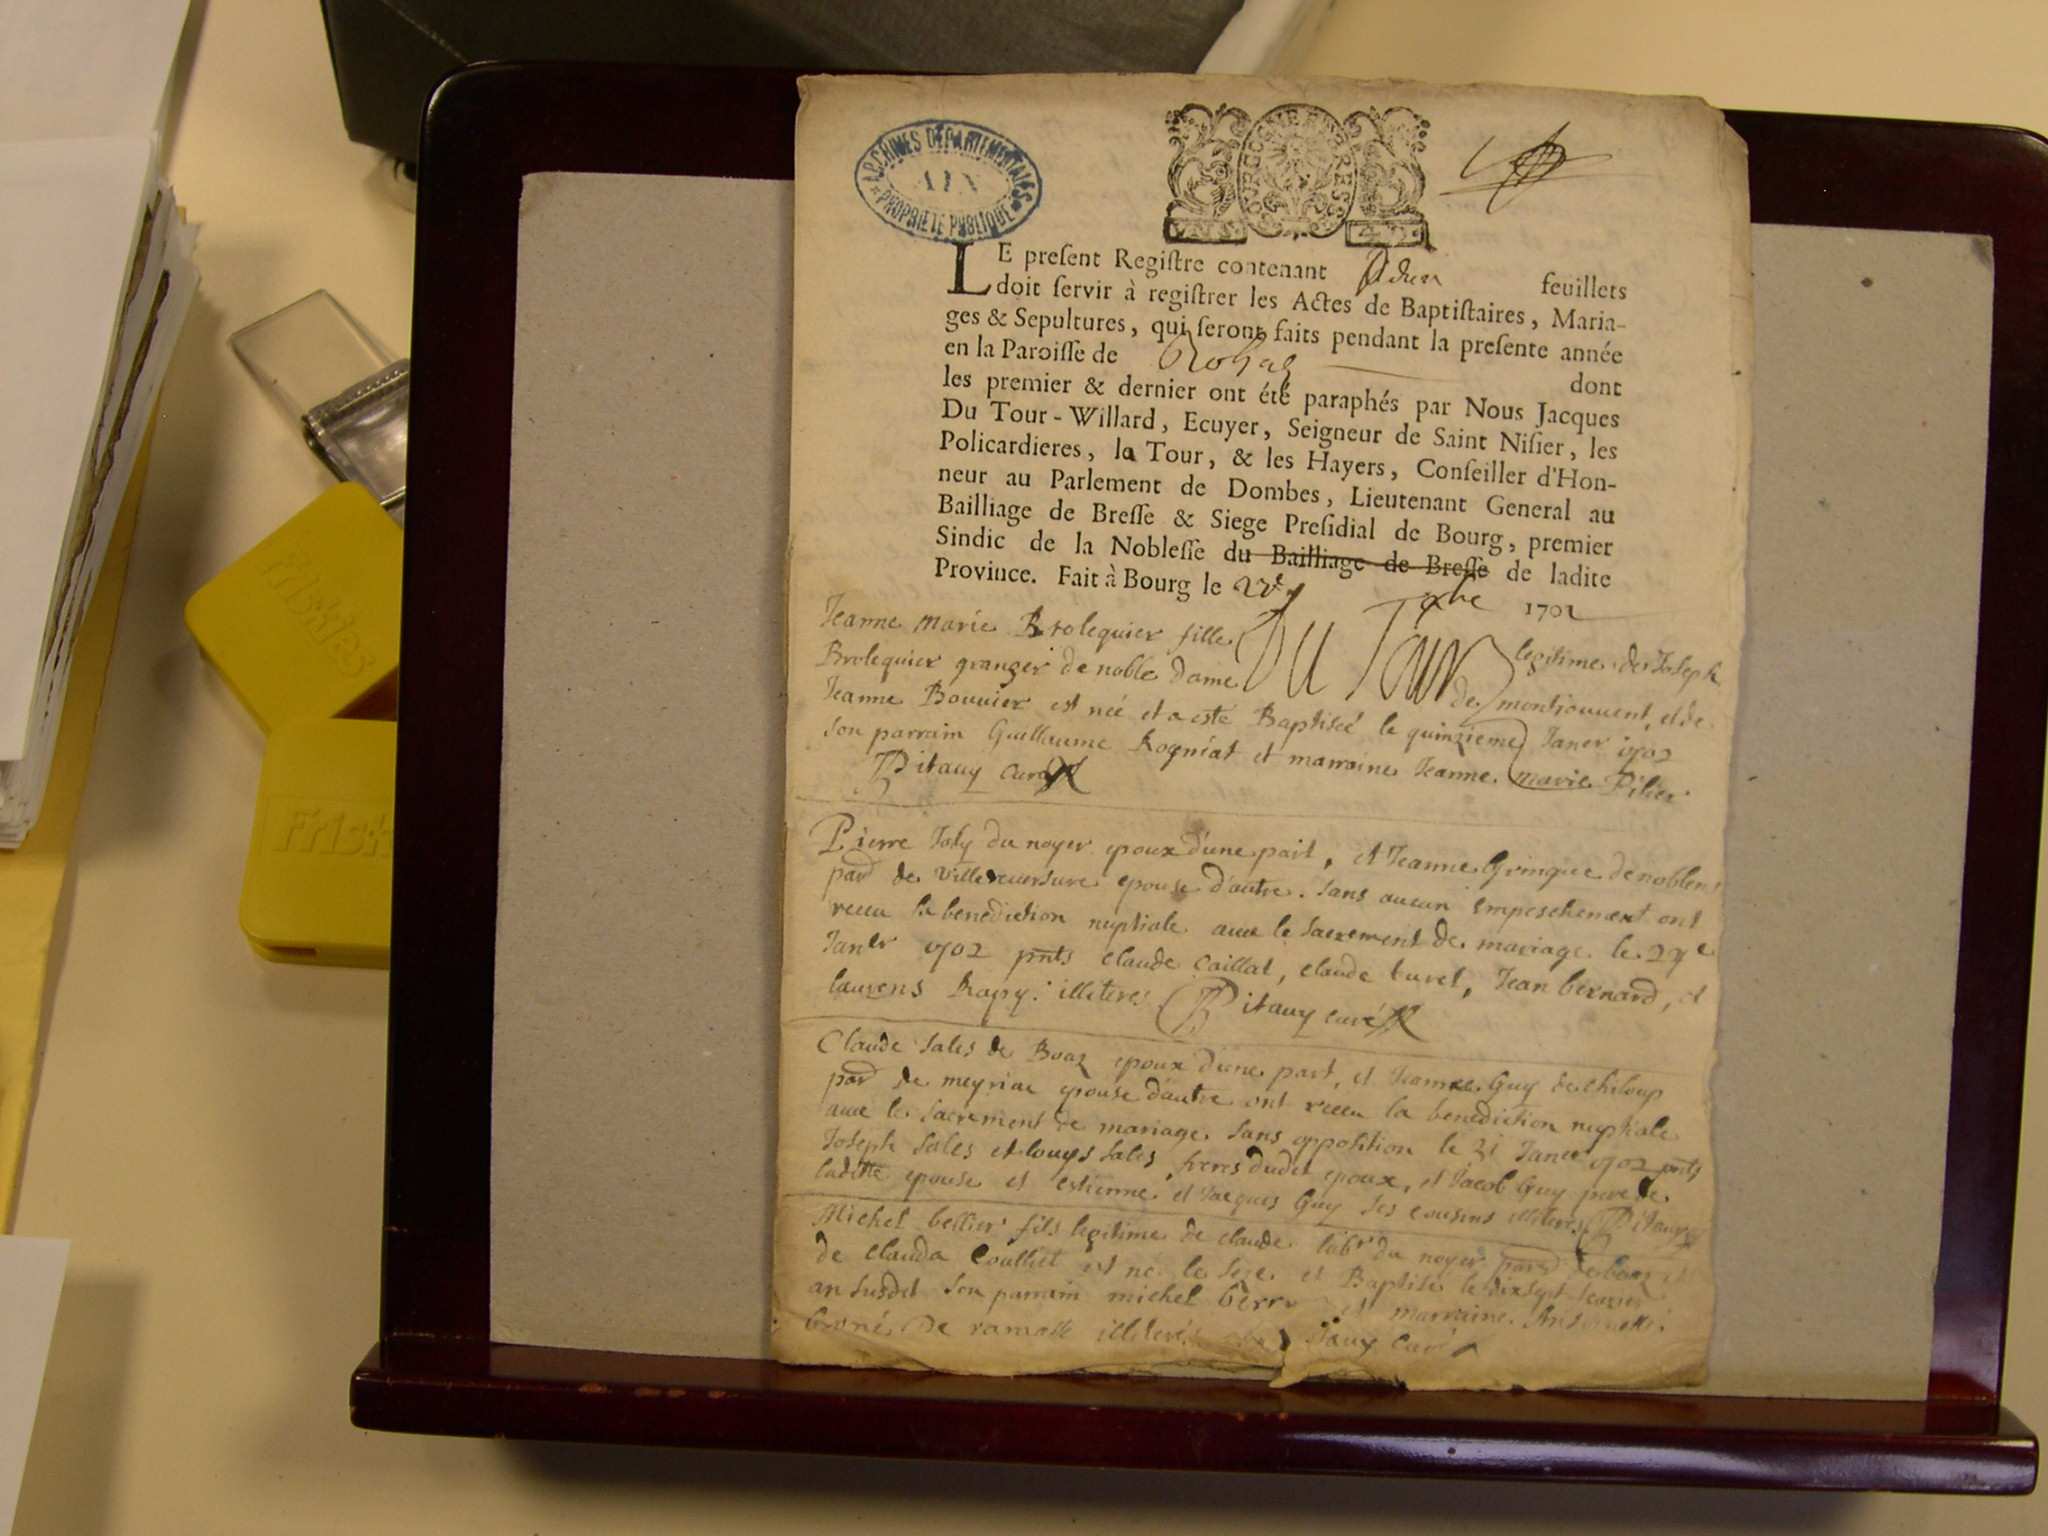 ARCHIVES DÉPARTEMENTALES
AIN
PROPRIÉTÉ PUBLIQUE
LE preſent Regiſtre contenant feuillets
doit ſervir à regiſtrer les Actes de Baptiſtaires, Maria-
ges & Sepultures, qui ſeront faits pendant la preſente année
en la Paroiſſe de dont
les premier & dernier ont été paraphés par Nous Jacques
Du Tour-Willard, Ecuyer, Seigneur de Saint Niſier, les
Policardieres, la Tour, & les Hayers, Conſeiller d'Hon-
neur au Parlement de Dombes, Lieutenant General au
Bailliage de Breſſe & Siege Preſidial de Bourg, premier
Sindic de la Nobleſſe du Bailliage de Breſſe de ladite
Province. Fait à Bourg le xbre 1701
Du Tour
Jeanne marie Brolequier fille legitime de Joseph
Brolequier granger de noble dame de montjouuent, et de
Jeanne Bouuier est née et a esté Baptiseé le quinzieme Janer 1702
son parrain Guillaume Rogniat et marraine Jeanne marie Pilier
Pitauy curé
Pierre Joly du noyer epoux d'une part, et Jeanne Gringue de noblens
pard de Villereuersure epouse d'autre. sans aucun empeschement ont
receu la benediction nuptiale auec le sacrement de mariage le 27e
Janer 1702 pnts claude Caillat, claude turel, Jean bernard, et
laurens Rapy illiterés Pitauy curé
Claude Sales de Boaz epoux d'une part, et Jeanne Guy de chiloup
pard de meyriac epouse d'autre ont receu la benediction nuptiale
auec le sacrement de mariage sans opposition le 31 Janer 1702 pnts
Joseph Sales et louys Sales freres dudit epoux, et Jacob Guy pere de
laditte epouse et estienne et Jacques Guy ses cousins illiterés Pitauy
Michel bellier fils legitime de claude labr du noyer pard de boaz et
de clauda Coulliet est né le seze et Baptisé le dixsept feurier
an susdit son parrain michel et marraine
de ramasse illiterés Pitauy curé
Friskies
Frisk